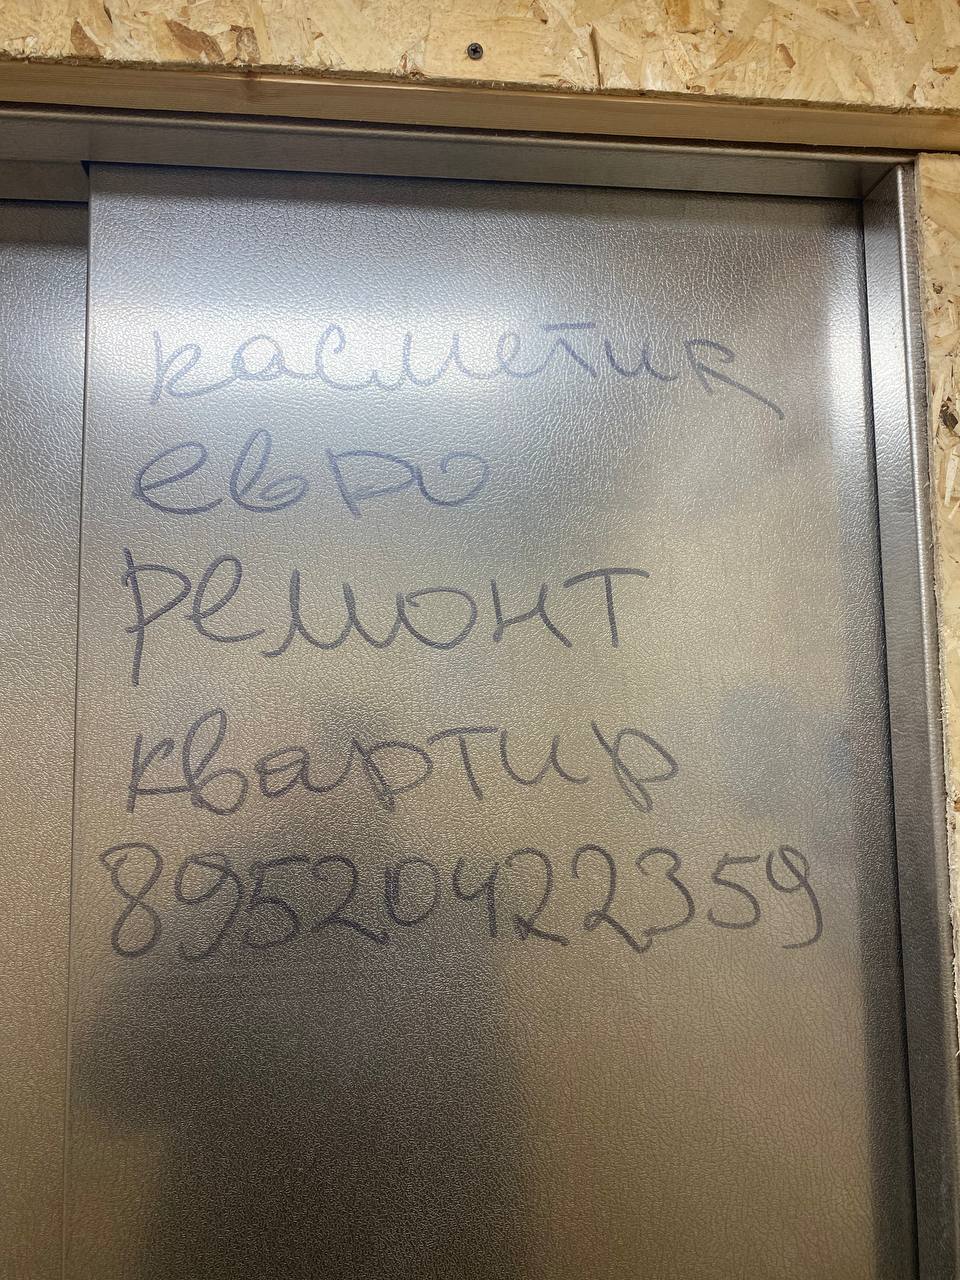 касметик
евро
ремонт
квартир
89520422359